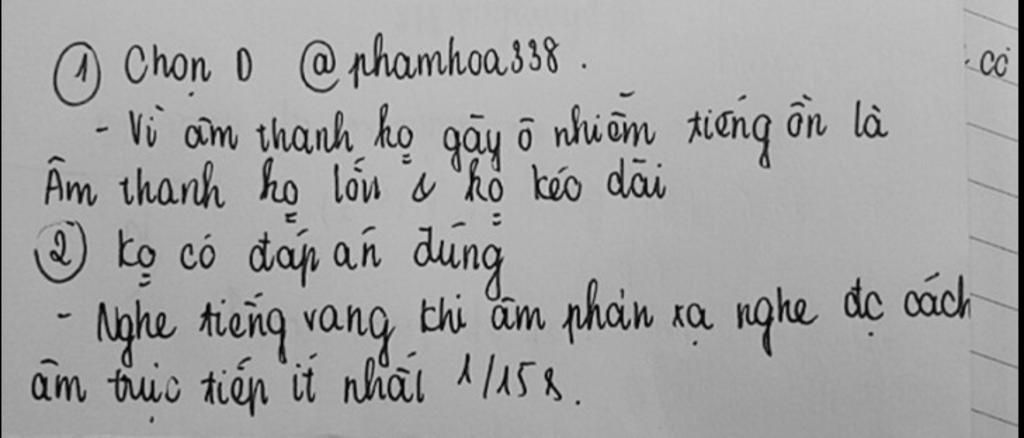 ① Chọn D @phamhoa338.
có
- Vì âm thanh kọ gây ô nhiễm tiếng ồn là
Âm thanh kọ lớn & kọ kéo dài
② kọ có đáp án đúng
- Nghe tiếng vang khi âm phản xạ nghe đc cách
âm trực tiếp ít nhất 1/15s.